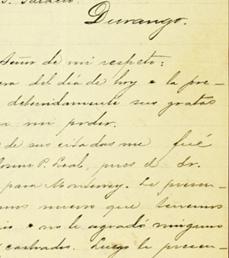 Durango.
Señor de mi respeto:
del día de hoy a la pre-
detenidamente sus gratas
mi poder.
de sus citadas me fué
P. Leal, pues el Sr.
para Monterrey. Le presen-
nuevo que tenemos
no le agradó ninguno
Luego le presen-